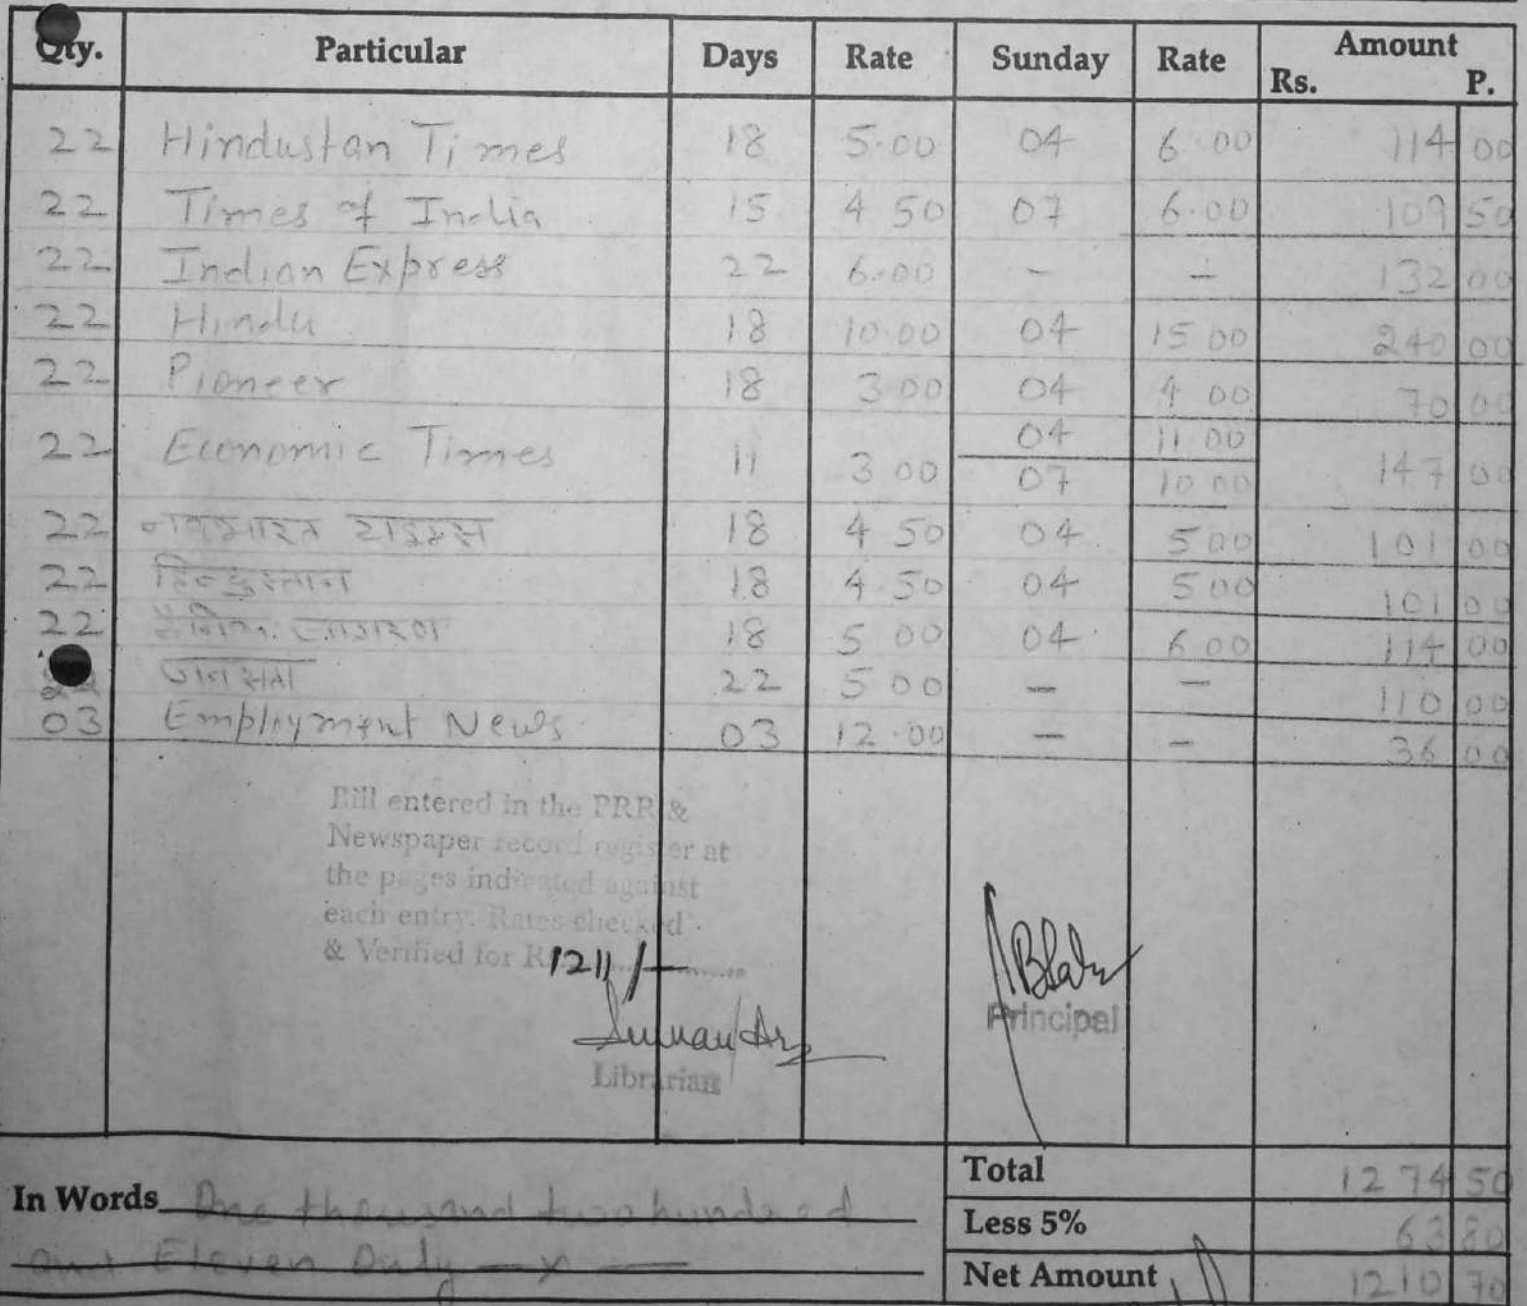 Qty. Particular Days Rate Sunday Rate Amount
Rs. P.
22 Hindustan Times 18 5.00 04 6.00 114 00
22 Times of India 15 4 50 07 6.00 109 50
22 Indian Express 22 6.00 - - 132 00
22 Hindu 18 10.00 04 15 00 240 00
22 Pioneer 18 3 00 04 4 00 70 00
22 Economic Times 11 3 00 04 11 00 147 00
07 10 00
22 नवभारत टाइम्स 18 4 50 04 5 00 101 00
22 हिन्दुस्तान 18 4.50 04 5 00 101 00
22 दैनिक जागरण 18 5 00 04 6 00 114 00
जनसत्ता 22 5 00 - - 110 00
03 Employment News 03 12.00 - - 36 00
Bill entered in the PRR &
Newspaper record register at
the pages indicated against
each entry. Rates checked
& Verified for R 1211/-
Librarian
Principal
Total 1274 50
In Words One thousand two hundred
Less 5% 63 80
and Eleven Only -x-
Net Amount 1210 70